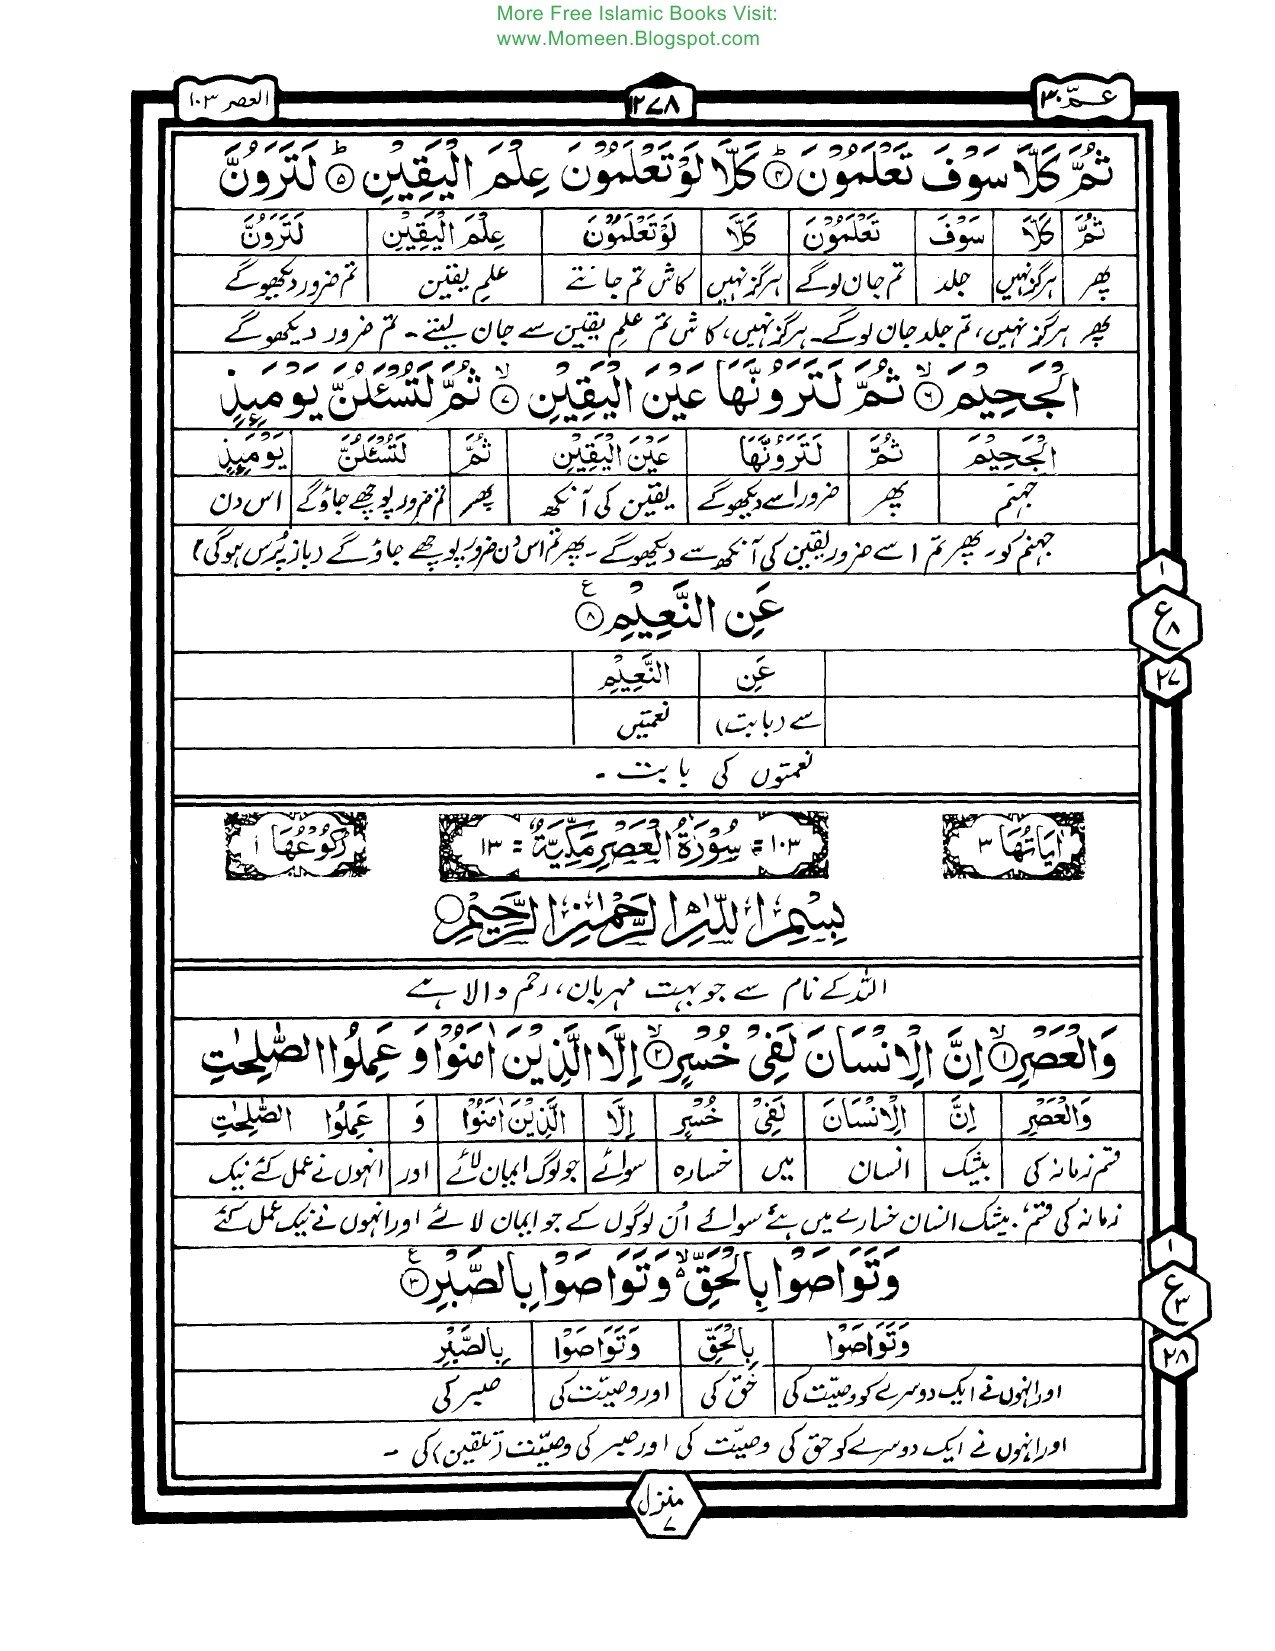 More Free Islamic Books Visit:
www.Momeen.Blogspot.com
عـمّ ۳۰ ۱۲۷۸ العصر ۱۰۳
ثُمَّ كَلَّا سَوْفَ تَعْلَمُوْنَ ؕ۴ كَلَّا لَوْ تَعْلَمُوْنَ عِلْمَ الْيَقِيْنِ ؕ۵ لَتَرَوُنَّ
ثُمَّ كَلَّا سَوْفَ تَعْلَمُوْنَ كَلَّا لَوْ تَعْلَمُوْنَ عِلْمَ الْيَقِيْنِ لَتَرَوُنَّ
پھر ہرگز نہیں جلد تم جان لوگے ہرگز نہیں کاش تم جانتے علمِ یقین تم ضرور دیکھوگے
پھر ہرگز نہیں، تم جلد جان لوگے۔ ہرگز نہیں، کاش تم علمِ یقین سے جان لیتے ۔ تم ضرور دیکھوگے
الْجَحِيْمَ ۙ۶ ثُمَّ لَتَرَوُنَّهَا عَيْنَ الْيَقِيْنِ ۙ۷ ثُمَّ لَتُسْـَٔلُنَّ يَوْمَىِٕذٍ
الْجَحِيْمَ ثُمَّ لَتَرَوُنَّهَا عَيْنَ الْيَقِيْنِ ثُمَّ لَتُسْـَٔلُنَّ يَوْمَىِٕذٍ
جہنم پھر ضرور اسے دیکھوگے یقین کی آنکھ پھر تم ضرور پوچھے جاؤگے اس دن
جہنم کو۔ پھر تم اسے ضرور یقین کی آنکھ سے دیکھوگے ۔ پھر تم اس دن ضرور پوچھے جاؤگے (بازپُرس ہوگی)
عَنِ النَّعِيْمِ ۸ ع
۱
ع ۸
۲۷
عَنِ النَّعِيْمِ
سے (بابت) نعمتیں
نعمتوں کی بابت ۔
اٰيَاتُهَا ۳ ۱۰۳ = سُوْرَةُ الْعَصْرِ مَكِّيَّةٌ = ۱۳ رُكُوْعُهَا ۱
بِسْمِ اللّٰهِ الرَّحْمٰنِ الرَّحِيْمِ
اللہ کے نام سے جو بہت مہربان، رحم والا ہے
وَالْعَصْرِ ۙ۱ اِنَّ الْاِنْسَانَ لَفِيْ خُسْرٍ ۙ۲ اِلَّا الَّذِيْنَ اٰمَنُوْا وَ عَمِلُوا الصّٰلِحٰتِ
وَالْعَصْرِ اِنَّ الْاِنْسَانَ لَفِيْ خُسْرٍ اِلَّا الَّذِيْنَ اٰمَنُوْا وَ عَمِلُوا الصّٰلِحٰتِ
قسم زمانہ کی بیشک انسان میں خسارہ سوائے جو لوگ ایمان لائے اور انہوں نے عمل کئے نیک
زمانہ کی قسم، بیشک انسان خسارے میں ہے، سوائے اُن لوگوں کے جو ایمان لائے اور انہوں نے نیک عمل کئے
وَتَوَاصَوْا بِالْحَقِّ ۙ۵ وَتَوَاصَوْا بِالصَّبْرِ ۳ ع
۱
ع ۳
۲۸
وَتَوَاصَوْا بِالْحَقِّ وَتَوَاصَوْا بِالصَّبْرِ
اور انہوں نے ایک دوسرے کو وصیّت کی حق کی اور وصیّت کی صبر کی
اور انہوں نے ایک دوسرے کو حق کی وصیّت کی اور صبر کی وصیّت (تلقین) کی ۔
منزل ۷